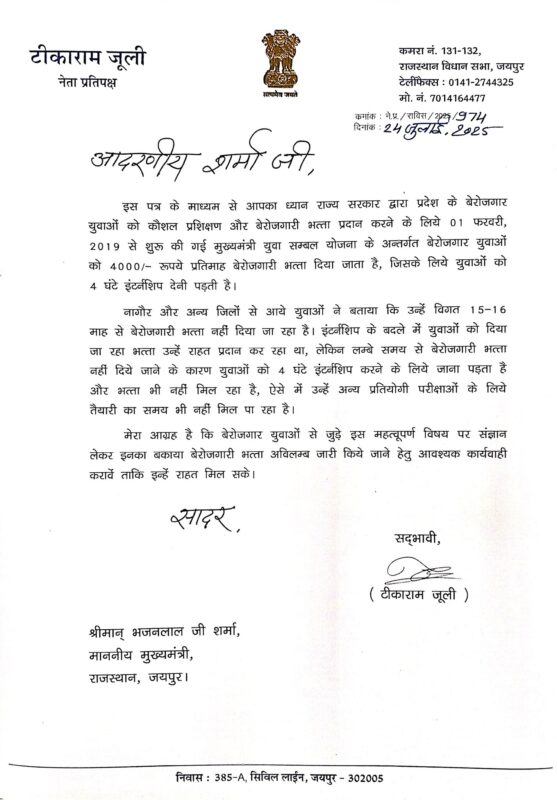 टीकाराम जूली
नेता प्रतिपक्ष
सत्यमेव जयते
कमरा नं. 131-132,
राजस्थान विधान सभा, जयपुर
टेलीफैक्स : 0141-2744325
मो. नं. 7014164477
क्रमांक : ने.प्र./सविस/2025/974
दिनांक : 24 जुलाई, 2025
आदरणीय शर्मा जी,
इस पत्र के माध्यम से आपका ध्यान राज्य सरकार द्वारा प्रदेश के बेरोजगार
युवाओं को कौशल प्रशिक्षण और बेरोजगारी भत्ता प्रदान करने के लिये 01 फरवरी,
2019 से शुरू की गई मुख्यमंत्री युवा सम्बल योजना के अन्तर्गत बेरोजगार युवाओं
को 4000/- रूपये प्रतिमाह बेरोजगारी भत्ता दिया जाता है, जिसके लिये युवाओं को
4 घंटे इंटर्नशिप देनी पड़ती है।
नागौर और अन्य जिलों से आये युवाओं ने बताया कि उन्हें विगत 15-16
माह से बेरोजगारी भत्ता नहीं दिया जा रहा है। इंटर्नशिप के बदले में युवाओं को दिया
जा रहा भत्ता उन्हें राहत प्रदान कर रहा था, लेकिन लम्बे समय से बेरोजगारी भत्ता
नहीं दिये जाने के कारण युवाओं को 4 घंटे इंटर्नशिप करने के लिये जाना पड़ता है
और भत्ता भी नहीं मिल रहा है, ऐसे में उन्हें अन्य प्रतियोगी परीक्षाओं के लिये
तैयारी का समय भी नहीं मिल पा रहा है।
मेरा आग्रह है कि बेरोजगार युवाओं से जुड़े इस महत्वपूर्ण विषय पर संज्ञान
लेकर इनका बकाया बेरोजगारी भत्ता अविलम्ब जारी किये जाने हेतु आवश्यक कार्यवाही
करावें ताकि इन्हें राहत मिल सके।
सादर,
सद्भावी,
( टीकाराम जूली )
श्रीमान् भजनलाल जी शर्मा,
माननीय मुख्यमंत्री,
राजस्थान, जयपुर।
निवास : 385-A, सिविल लाईन, जयपुर - 302005